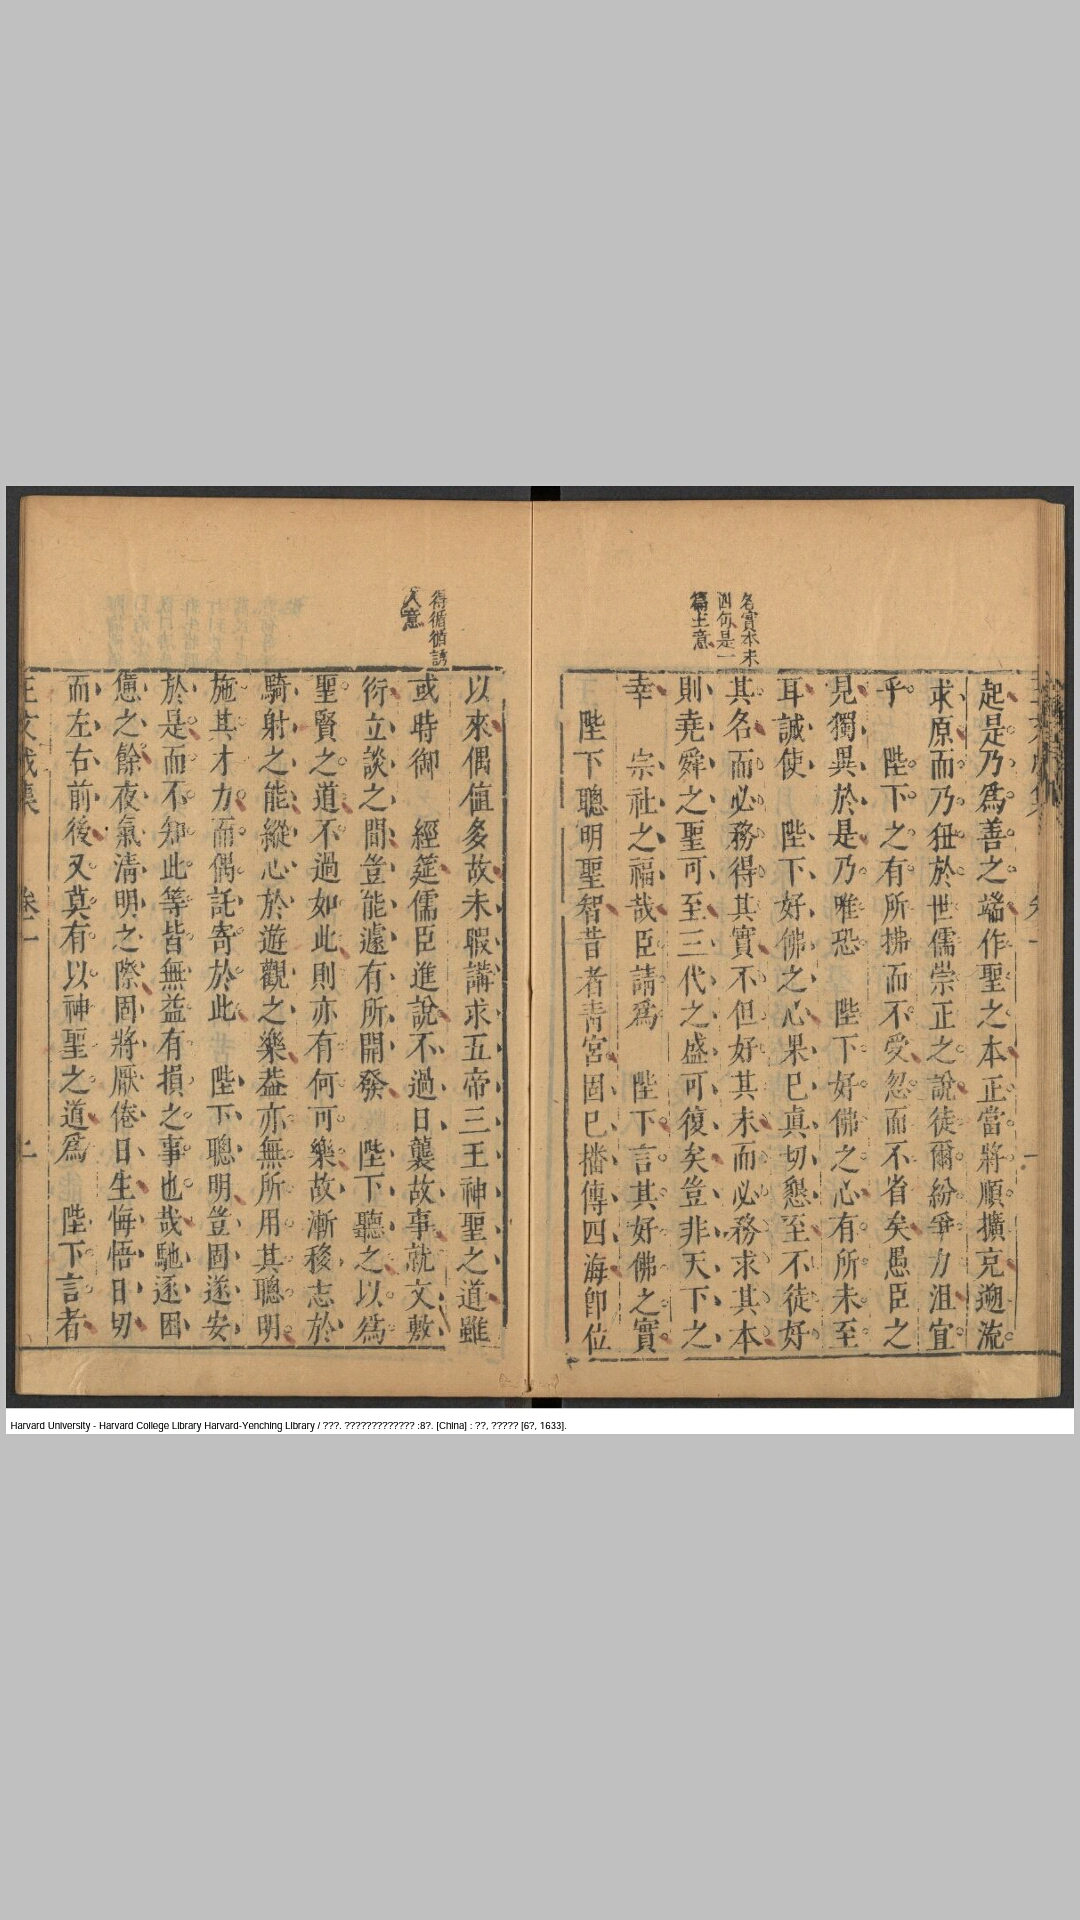 名實本末
四句是一
篇主意
起是乃爲善之端作聖之本正當將順擴克遡流
求原而乃狃於世儒崇正之說徒爾紛爭力沮宜
乎 陛下之有所拂而不受忽而不省矣愚臣之
見獨異於是乃唯恐 陛下好佛之心有所未至
耳誠使 陛下好佛之心果已真切懇至不徒好
其名而必務得其實不但好其末而必務求其本
則堯舜之聖可至三代之盛可復矣豈非天下之
幸 宗社之福哉臣請爲 陛下言其好佛之實
陛下聰明聖智昔者青宮固已播傳四海卽位
得循循誘
人意
以來偶值多故未暇講求五帝三王神聖之道雖
或時御 經筵儒臣進說不過日襲故事就文敷
衍立談之間豈能遽有所開發 陛下聽之以爲
聖賢之道不過如此則亦有何可樂故漸移志於
騎射之能縱心於遊觀之樂葢亦無所用其聰明
施其才力而偶託寄於此 陛下聰明豈固遂安
於是而不知此等皆無益有損之事也哉馳逐困
憊之餘夜氣淸明之際固將厭倦日生悔悟日切
而左右前後又莫有以神聖之道爲 陛下言者
卷一
二
Harvard University - Harvard College Library Harvard-Yenching Library / ???. ????????????? :8?. [China] : ??, ????? [6?, 1633].